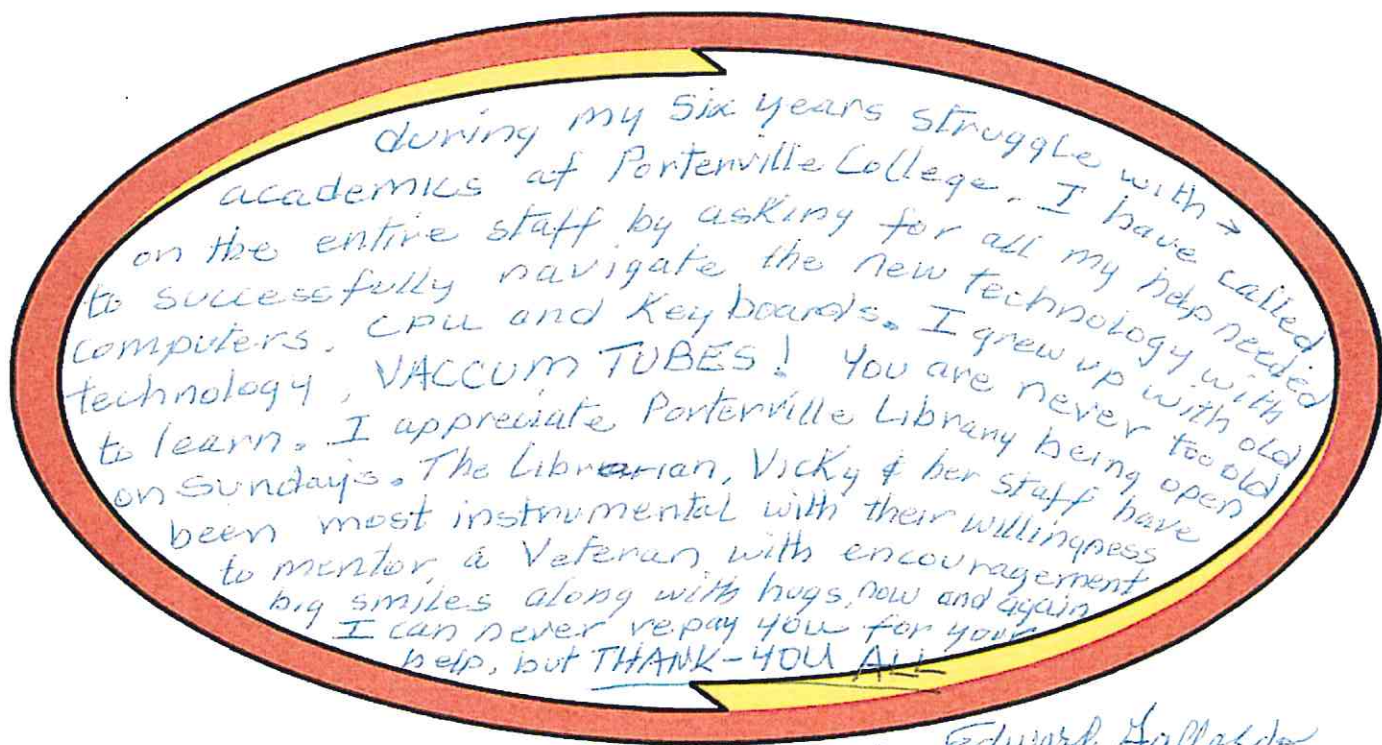 during my Six years struggle with →
academics at Porterville College. I have called
on the entire staff by asking for all my help needed
to successfully navigate the new technology with
computers, CPU and Keyboards. I grew up with old
technology, VACCUM TUBES! You are never too old
to learn. I appreciate Porterville Library being open
on Sundays. The Librarian, Vicky & her staff have
been most instrumental with their willingness
to mentor, a Veteran, with encouragement
big smiles along with hugs, now and again
I can never repay you for your
help, but THANK-YOU ALL
Edward Gallardo